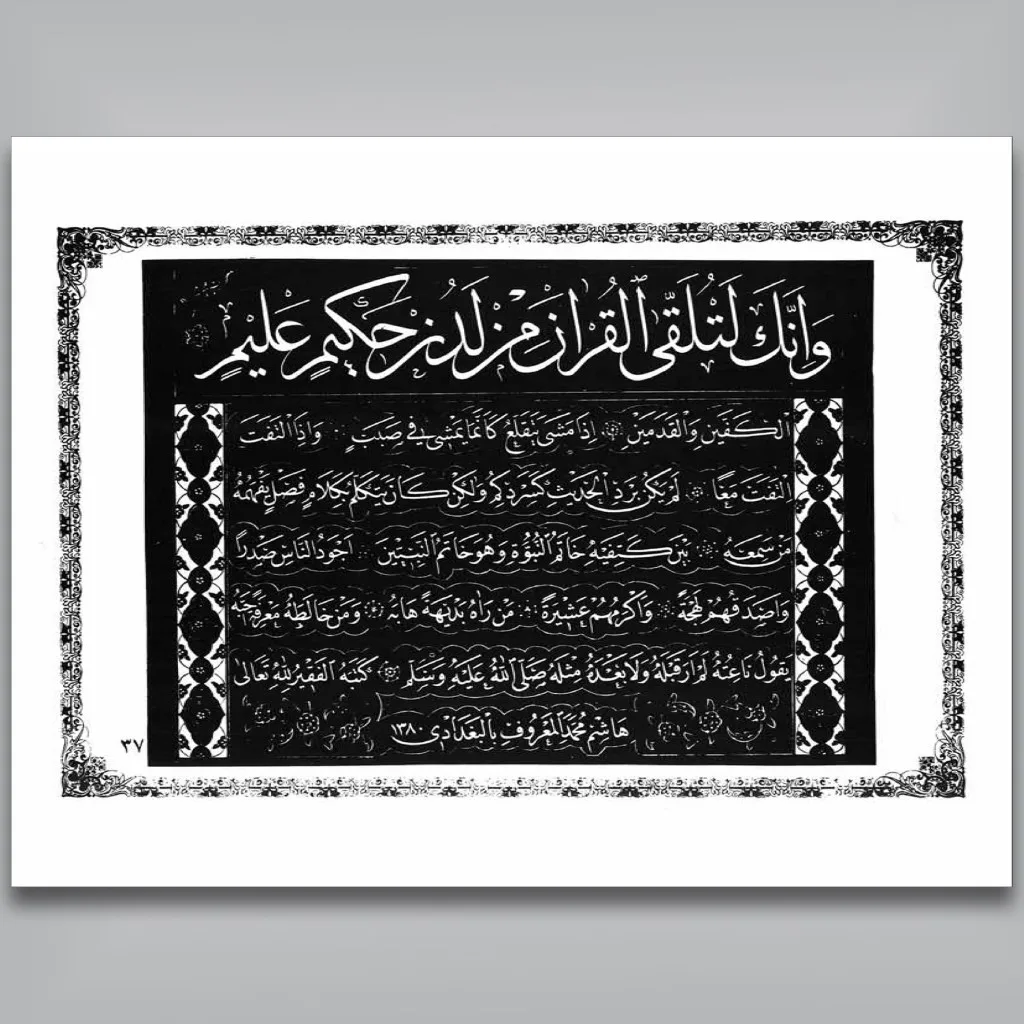 وَإِنَّكَ لَتُلَقَّى الْقُرْآنَ مِنْ لَدُنْ حَكِيمٍ عَلِيمٍ
الكفين والقدمين اذا مشى يتقلع كانما يمشي في صبب واذا التفت
التفت معا لم يكن يرد الحديث كسردكم ولكن كان يتكلم بكلام فصل يفهمه
من سمعه بين كتفيه خاتم النبوة وهو خاتم النبيين اجود الناس صدرا
واصدقهم لهجة واكرمهم عشيرة من رآه بديهة هابه ومن خالطه معرفة احبه
يقول ناعته لم ار قبله ولا بعده مثله صلى الله عليه وسلم كتبه الفقير لله تعالى
هاشم محمد المعروف بالبغدادي ١٣٨٠
٣٧